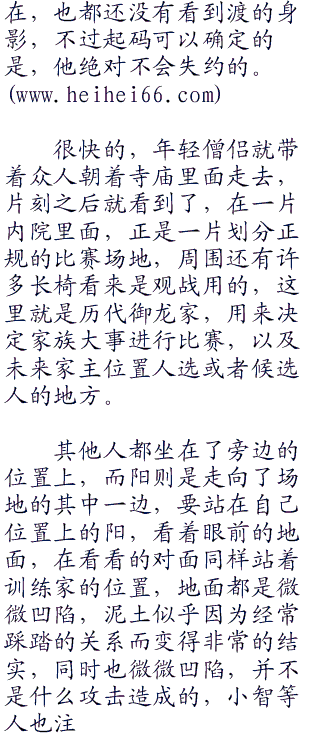 在，也都还没有看到渡的身
影，不过起码可以确定的
是，他绝对不会失约的。
(www.heihei66.com)
很快的，年轻僧侣就带
着众人朝着寺庙里面走去，
片刻之后就看到了，在一片
内院里面，正是一片划分正
规的比赛场地，周围还有许
多长椅看来是观战用的，这
里就是历代御龙家，用来决
定家族大事进行比赛，以及
未来家主位置人选或者候选
人的地方。
其他人都坐在了旁边的
位置上，而阳则是走向了场
地的其中一边，要站在自己
位置上的阳，看着眼前的地
面，在看看的对面同样站着
训练家的位置，地面都是微
微凹陷，泥土似乎因为经常
踩踏的关系而变得非常的结
实，同时也微微凹陷，并不
是什么攻击造成的，小智等
人也注